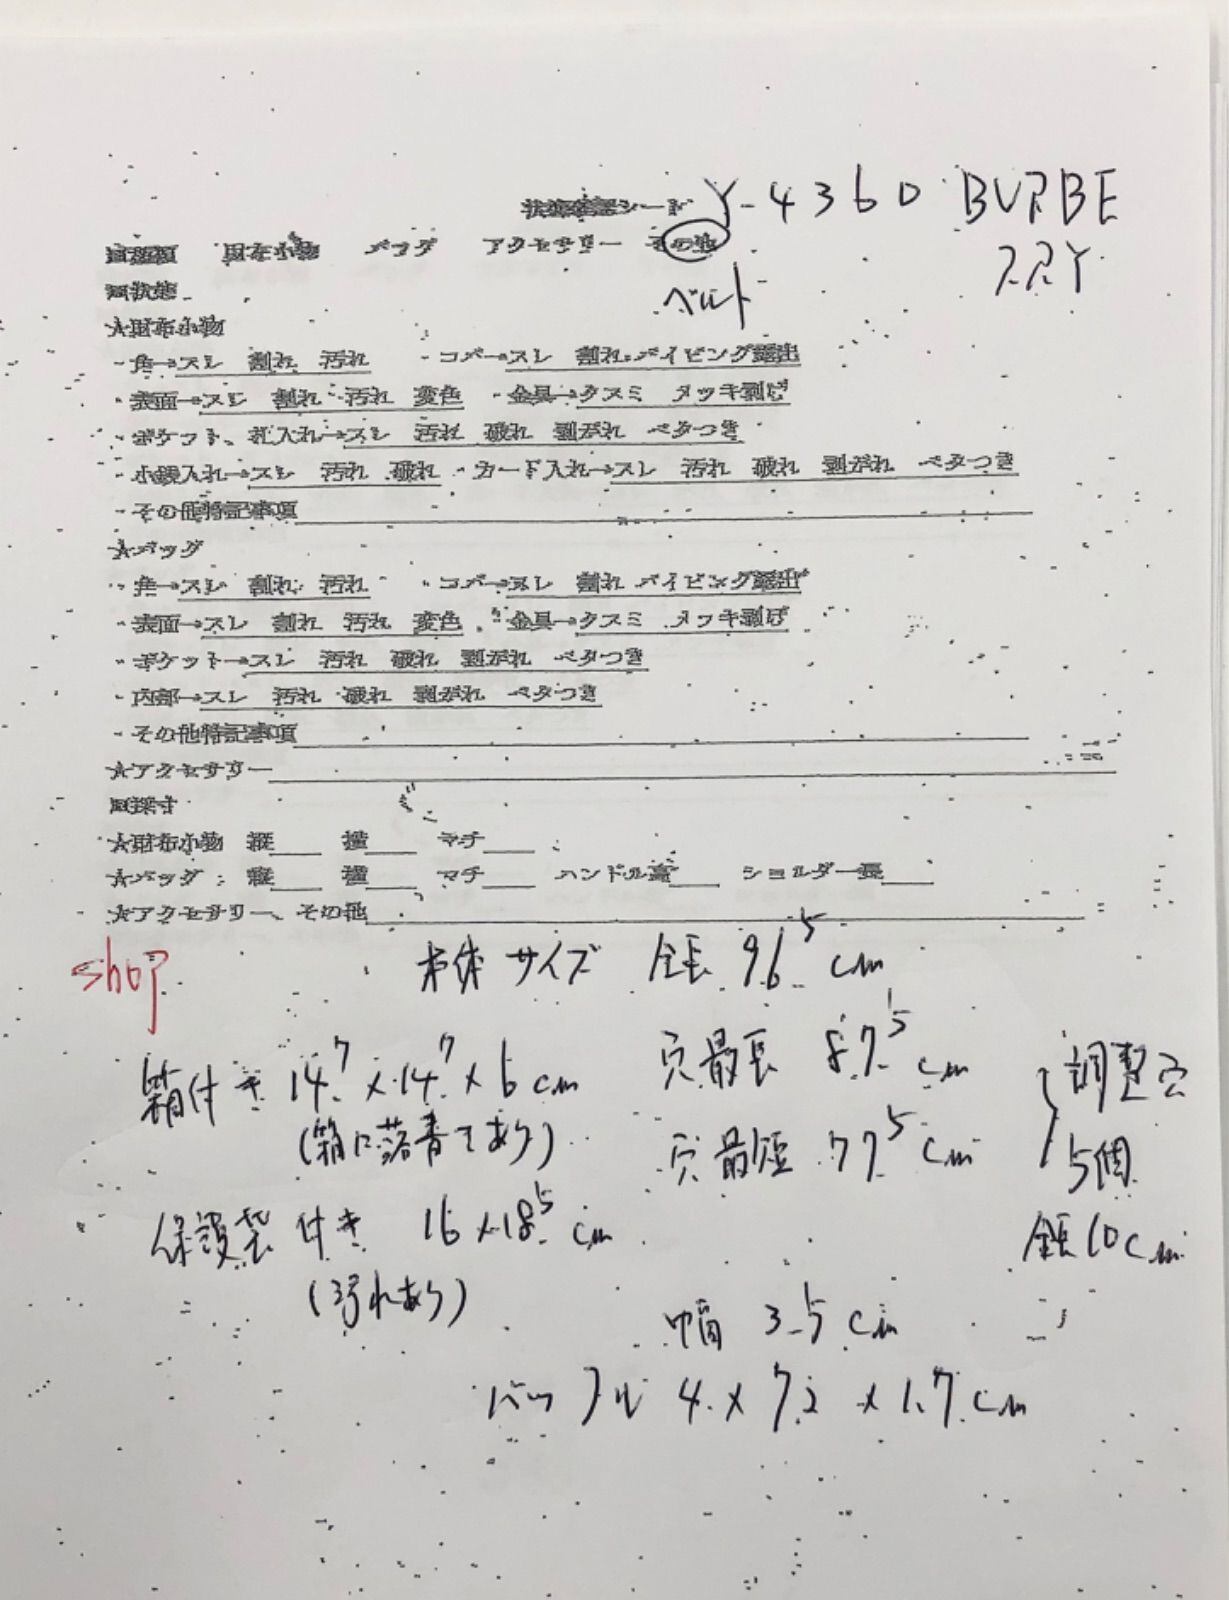 状態確認シート Y-4360 BURBE
RRY
財布小物 バッグ アクセサリー その他
ベルト
状態
★財布小物
・角→スレ 割れ 汚れ ・コバ→スレ 割れ パイピング露出
・表面→スレ 割れ 汚れ 変色 ・金具→クスミ メッキ剥げ
・ポケット、札入れ→スレ 汚れ 破れ 剥がれ ベタつき
・小銭入れ→スレ 汚れ 破れ ・カード入れ→スレ 汚れ 破れ 剥がれ ベタつき
・その他特記事項
★バッグ
・角→スレ 割れ 汚れ ・コバ→スレ 割れ パイピング露出
・表面→スレ 割れ 汚れ 変色 ・金具→クスミ メッキ剥げ
・ポケット→スレ 汚れ 破れ 剥がれ ベタつき
・内部→スレ 汚れ 破れ 剥がれ ベタつき
・その他特記事項
★アクセサリー
採寸
★財布小物 縦 横 マチ
★バッグ 縦 横 マチ ハンドル高 ショルダー長
★アクセサリー、その他
shop
本体サイズ 全長 96.5 cm
穴最長 87.5 cm
穴最短 77.5 cm
調整穴
5個
全長10cm
箱付き 14.7×14.7×6cm
(箱に落書きあり)
保護袋付き 16×18.5cm
(汚れあり)
幅 3.5cm
バックル 4×7.2×1.7cm